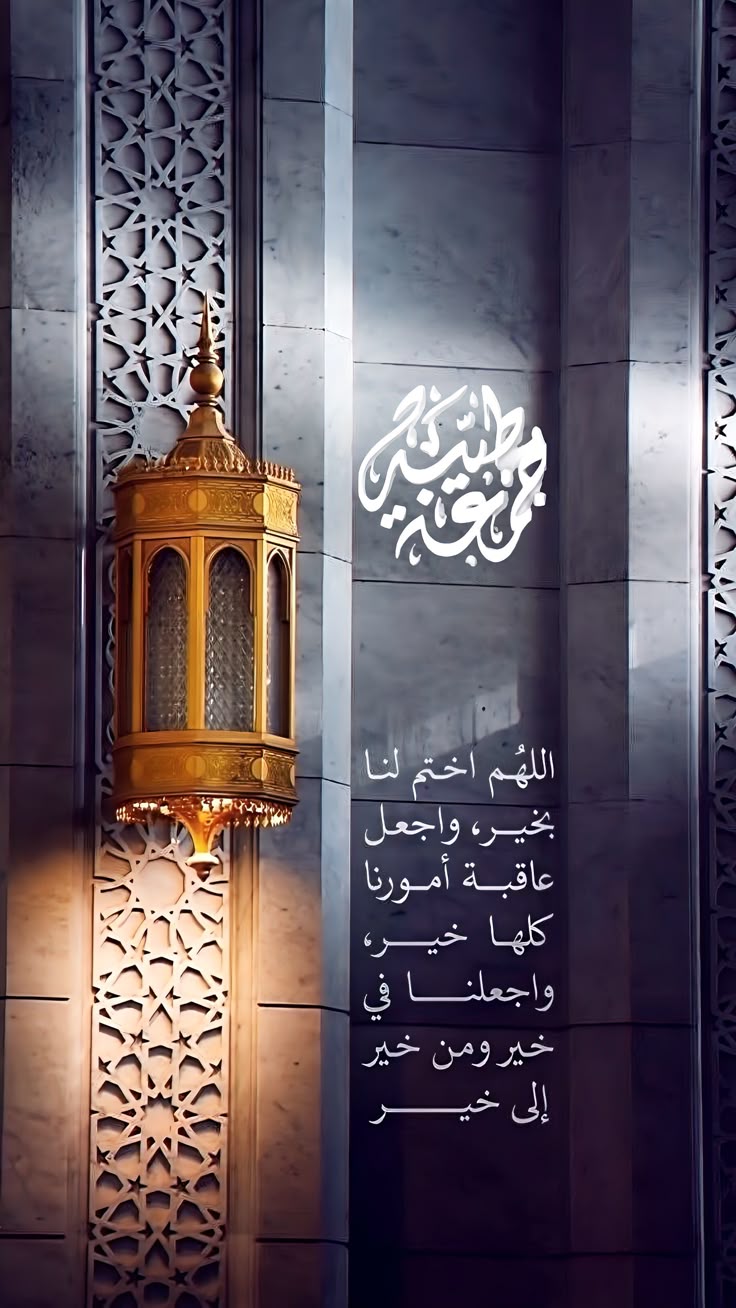 جمعة طيبة
اللهُم اختم لنا
بخيـر، واجعل
عاقبـة أمـورنا
كلهـا خيـــر،
واجعلنـــا في
خير ومن خير
إلى خيـــــر